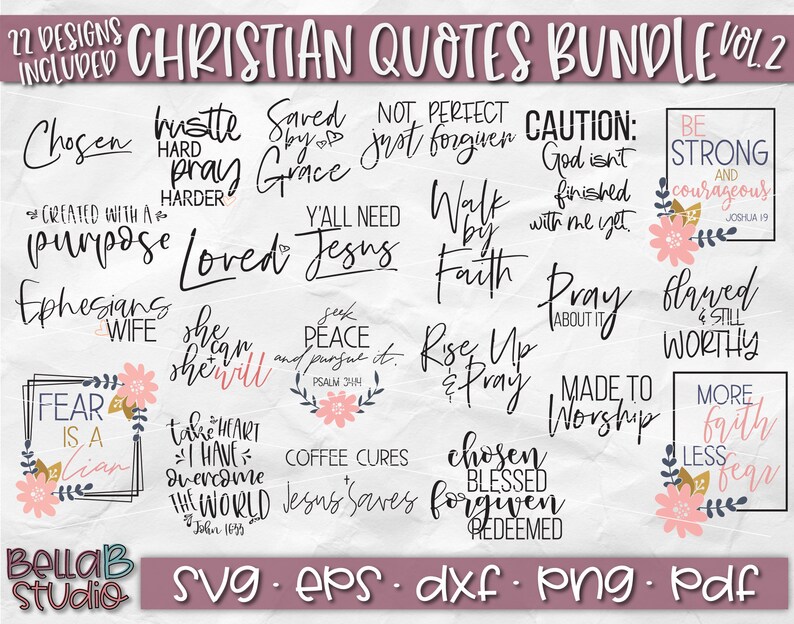 22 DESIGNS
INCLUDED
CHRISTIAN QUOTES BUNDLE VOL. 2
Chosen
hustle
HARD
pray
HARDER
Saved
by
Grace
NOT PERFECT
just forgiven
CAUTION:
God isn't
finished
with me yet.
BE
STRONG
AND
courageous
JOSHUA 1:9
CREATED WITH A
purpose
Loved
Y'ALL NEED
Jesus
Walk
by
Faith
Ephesians
WIFE
she
can
+
she will
seek
PEACE
and pursue it.
PSALM 34:14
Rise Up
& Pray
Pray
ABOUT IT
flawed
& STILL
WORTHY
FEAR
IS A
liar
take HEART
I HAVE
overcome
THE WORLD
John 16:33
COFFEE CURES
+
Jesus Saves
chosen
BLESSED
forgiven
REDEEMED
MADE TO
Worship
MORE
faith
LESS
fear
BellaB
Studio
SVG · EPS · DXF · PNG · PDF